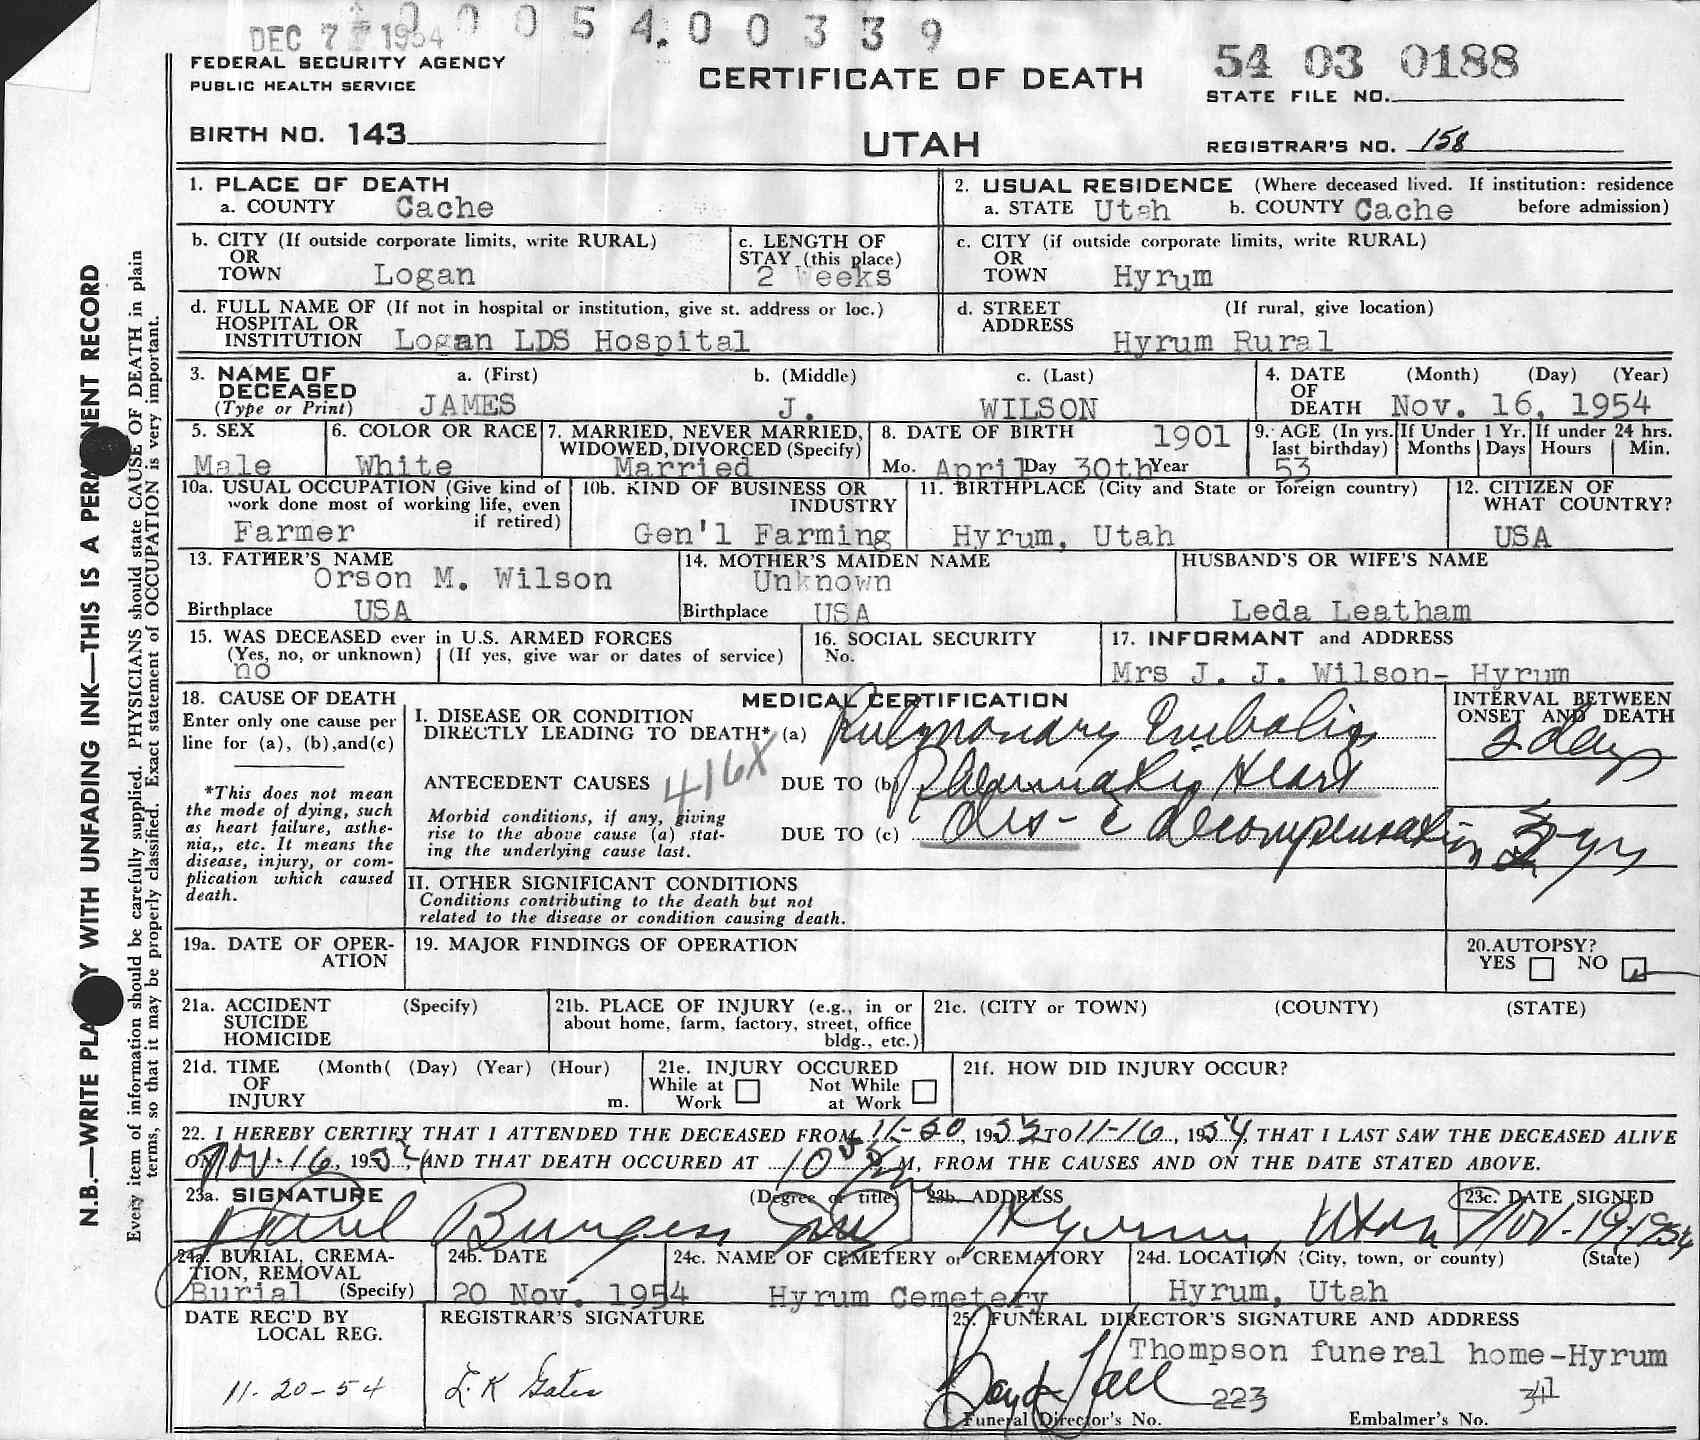 DEC 7 1954 0 0 5 4 0 0 3 3 9
FEDERAL SECURITY AGENCY
PUBLIC HEALTH SERVICE
CERTIFICATE OF DEATH
54 03 0188
STATE FILE NO.
BIRTH NO. 143
UTAH
REGISTRAR'S NO. 158
1. PLACE OF DEATH
a. COUNTY Cache
2. USUAL RESIDENCE (Where deceased lived. If institution: residence
a. STATE Utah b. COUNTY Cache before admission)
b. CITY (If outside corporate limits, write RURAL)
OR
TOWN Logan
c. LENGTH OF
STAY (this place)
2 Weeks
c. CITY (if outside corporate limits, write RURAL)
OR
TOWN Hyrum
d. FULL NAME OF (If not in hospital or institution, give st. address or loc.)
HOSPITAL OR
INSTITUTION Logan LDS Hospital
d. STREET (If rural, give location)
ADDRESS
Hyrum Rural
3. NAME OF a. (First) b. (Middle) c. (Last)
DECEASED
(Type or Print) JAMES J. WILSON
4. DATE (Month) (Day) (Year)
OF
DEATH Nov. 16, 1954
5. SEX
Male
6. COLOR OR RACE
White
7. MARRIED, NEVER MARRIED,
WIDOWED, DIVORCED (Specify)
Married
8. DATE OF BIRTH 1901
Mo. April Day 30th Year
9. AGE (In yrs.
last birthday)
53
If Under 1 Yr.
Months Days
If under 24 hrs.
Hours Min.
10a. USUAL OCCUPATION (Give kind of
work done most of working life, even
if retired)
Farmer
10b. KIND OF BUSINESS OR
INDUSTRY
Gen'l Farming
11. BIRTHPLACE (City and State or foreign country)
Hyrum, Utah
12. CITIZEN OF
WHAT COUNTRY?
USA
13. FATHER'S NAME
Orson M. Wilson
Birthplace USA
14. MOTHER'S MAIDEN NAME
Unknown
Birthplace USA
HUSBAND'S OR WIFE'S NAME
Leda Leatham
15. WAS DECEASED ever in U.S. ARMED FORCES
(Yes, no, or unknown) (If yes, give war or dates of service)
no
16. SOCIAL SECURITY
No.
17. INFORMANT and ADDRESS
Mrs J. J. Wilson- Hyrum
18. CAUSE OF DEATH
Enter only one cause per
line for (a), (b),and(c)
*This does not mean
the mode of dying, such
as heart failure, asthe-
nia,, etc. It means the
disease, injury, or com-
plication which caused
death.
MEDICAL CERTIFICATION
I. DISEASE OR CONDITION
DIRECTLY LEADING TO DEATH* (a) Pulmonary Embolis
ANTECEDENT CAUSES 416X DUE TO (b) Rheumatic Heart
Morbid conditions, if any, giving
rise to the above cause (a) stat-
ing the underlying cause last.
DUE TO (c) dis- c decompensation
INTERVAL BETWEEN
ONSET AND DEATH
2 days
yrs
II. OTHER SIGNIFICANT CONDITIONS
Conditions contributing to the death but not
related to the disease or condition causing death.
19a. DATE OF OPER-
ATION
19. MAJOR FINDINGS OF OPERATION
20.AUTOPSY?
YES NO
21a. ACCIDENT (Specify)
SUICIDE
HOMICIDE
21b. PLACE OF INJURY (e.g., in or
about home, farm, factory, street, office
bldg., etc.)
21c. (CITY or TOWN) (COUNTY) (STATE)
21d. TIME (Month( (Day) (Year) (Hour)
OF
INJURY m.
21e. INJURY OCCURED
While at Work Not While at Work
21f. HOW DID INJURY OCCUR?
22. I HEREBY CERTIFY THAT I ATTENDED THE DECEASED FROM 11-20, 1953 TO 11-16, 1954, THAT I LAST SAW THE DECEASED ALIVE
ON Nov. 16, 1954, AND THAT DEATH OCCURED AT 10 M, FROM THE CAUSES AND ON THE DATE STATED ABOVE.
23a. SIGNATURE (Degree or title)
Burgess MD
23b. ADDRESS
Hyrum, Utah
23c. DATE SIGNED
Nov-19-1954
24a. BURIAL, CREMA-
TION, REMOVAL
Burial (Specify)
24b. DATE
20 Nov. 1954
24c. NAME OF CEMETERY or CREMATORY
Hyrum Cemetery
24d. LOCATION (City, town, or county) (State)
Hyrum, Utah
DATE REC'D BY
LOCAL REG.
11-20-54
REGISTRAR'S SIGNATURE
L. K Gates
25. FUNERAL DIRECTOR'S SIGNATURE AND ADDRESS
Thompson funeral home-Hyrum
Boyd Hall 223 341
Funeral Director's No. Embalmer's No.
N.B.—WRITE PLAINLY WITH UNFADING INK—THIS IS A PERMANENT RECORD
Every item of information should be carefully supplied. PHYSICIANS should state CAUSE OF DEATH in plain
terms, so that it may be properly classified. Exact statement of OCCUPATION is very important.